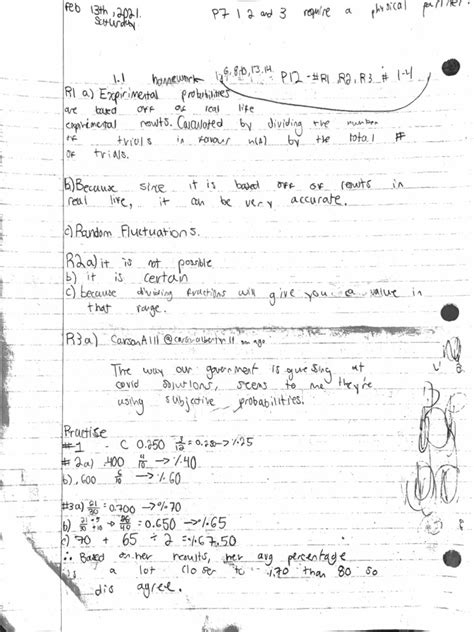 Feb 13th, 2021.
Saturday
P7 1 2 and 3 require a physical partner.
1.1 homework 6, 8, 10, 13, 14 P12 - #R1, R2, R3 # 1-4
R1 a) Expirimental probabilities
are based off of real life
expirimental results. Calculated by dividing the number
of trials in favour n(A) by the total #
of trials.
b) Because since it is based off of results in
real life, it can be very accurate.
c) Random Fluctuations.
R2 a) it is not possible
b) it is certain
c) because dividing fractions will give you a value in
that range.
R3 a) CarsonAlll
The way our government is guessing at
covid solutions, seems to me they're
using subjective probabilities.
Practise
#1 - C 0.250 3/12 = 0.250 -> %25
#2 a) .400 4/10 -> %.40
b) .600 6/10 -> %.60
#3 a) 21/30 = 0.700 -> %70
b) = 0.650 -> %65
c) 70 + 65 ÷ 2 = %67.50
∴ Based on her results, her avg percentage
is a lot closer to %70 than 80 so
disagree.